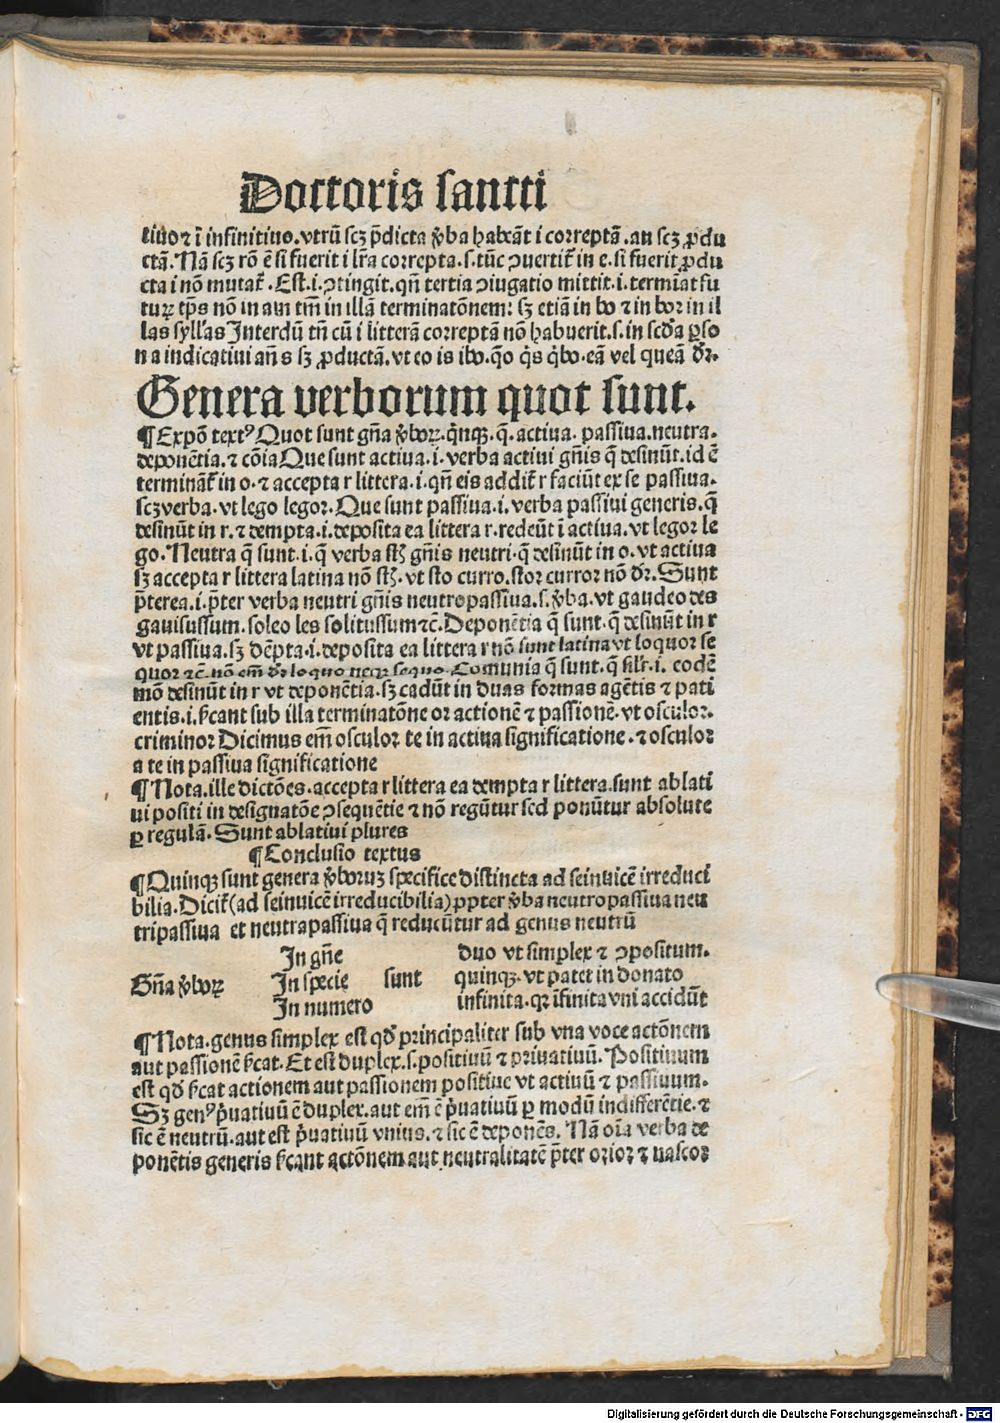 Doctoris sancti
tiuo ⁊ ī infinitiuo.vtrū scꝫ p̄dicta v̄ba habeāt i correptā.an scꝫ ꝓdu
ctā.Nā scꝫ rō ē si fuerit i lr̄a correpta.s.tūc ꝯuertit᷑ in e.si fuerit ꝓdu
cta i nō mutat᷑.Est.i.ꝯtingit.qn̄ tertia ꝯiugatio mittit.i.termīat fu
turꝝ tp̄s nō in am tm̄ in illā terminatōnem: sꝫ etiā in bo ⁊ in bor in il
las syll'as Interdū tn̄ cū i litterā correptā nō habuerit.s.in scd̄a ꝑso
na indicatiui añs sꝫ ꝓductā.vt eo is ibo.q̄o q̇s q̇bo.eā vel queā dr̄.
Genera verborum quot sunt.
¶Expō textꝰ Quot sunt gn̄a v̄boꝝ.q̇nqꝫ.q̄.actiua.passiua.neutra.
deponētia.⁊ cōia Que sunt actiua.i.verba actiui gn̄is q̄ desinūt.id ē
termināt᷑ in o.⁊ accepta r littera.i.qn̄ eis addit᷑ r faciūt ex se passiua.
scꝫ verba.vt lego legor.Que sunt passiua.i.verba passiui generis.q̄
desinūt in r.⁊ dempta.i.deposita ea littera r.redeūt ī actiua.vt legor le
go.Neutra q̄ sunt.i.q̄ verba st̄ꝫ gn̄is neutri.q̄ desinūt in o.vt actiua
sꝫ accepta r littera latina nō st̄ꝫ.vt sto curro.stor curror nō dr̄.Sunt
p̄terea.i.p̄ter verba neutri gn̄is neutropassiua.s.v̄ba.vt gaudeo des
gauisussum.soleo les solitussum ⁊c̄.Deponētia q̄ sunt.q̄ desinūt in r
vt passiua.sꝫ dēpta.i.deposita ea littera r nō sunt latina vt loquor se
quor ⁊c̄.nō em̄ dr̄ loquo neqꝫ sequo.Comunia q̄ sunt.q̄ sil'r.i.eodē
mō desinūt in r vt deponētia.sꝫ cadūt in duas formas agētis ⁊ pati
entis.i.s̄cant sub illa terminatōne or actionē ⁊ passionē.vt osculor.
criminor Dicimus em̄ osculor te in actiua significatione.⁊ osculor
a te in passiua significatione
¶Nota.ille dictōes.accepta r littera ea dempta r littera.sunt ablati
ui positi in designatōe ꝯsequētie ⁊ nō regūtur sed ponūtur absolute
ꝑ regulā.Sunt ablatiui plures
¶Conclusio textus
¶Quinqꝫ sunt genera v̄boruꝫ specifice distincta ad seinuicē irreduci
bilia.Dicit᷑ (ad seinuicē irreducibilia) ꝓpter v̄ba neutropassiua neu
tripassiua et neutrapassiua q̄ reducūtur ad genus neutrū
Gn̄a v̄boꝝ
In gn̄e
In specie
In numero
sunt
duo vt simplex ⁊ ꝯpositum.
quinqꝫ.vt patet in donato
infinita.qꝛ īfinita vni accidūt
¶Nota.genus simplex est qd̄ principaliter sub vna voce actōnem
aut passionē s̄cat.Et est duplex.s.positiuū ⁊ priuatiuū.Positiuum
est qd̄ s̄cat actionem aut passionem positiue vt actiuū ⁊ passiuum.
Sꝫ genꝰ ṗuatiuū ē duplex.aut em̄ ē ṗuatiuū ꝑ modū indifferētie.⁊
sic ē neutrū.aut est ṗuatiuū vnius.⁊ sic ē deponēs.Nā oīa verba de
ponētis generis s̄cant actōnem aut neutralitatē p̄ter orior ⁊ nascor
Digitalisierung gefördert durch die Deutsche Forschungsgemeinschaft - DFG